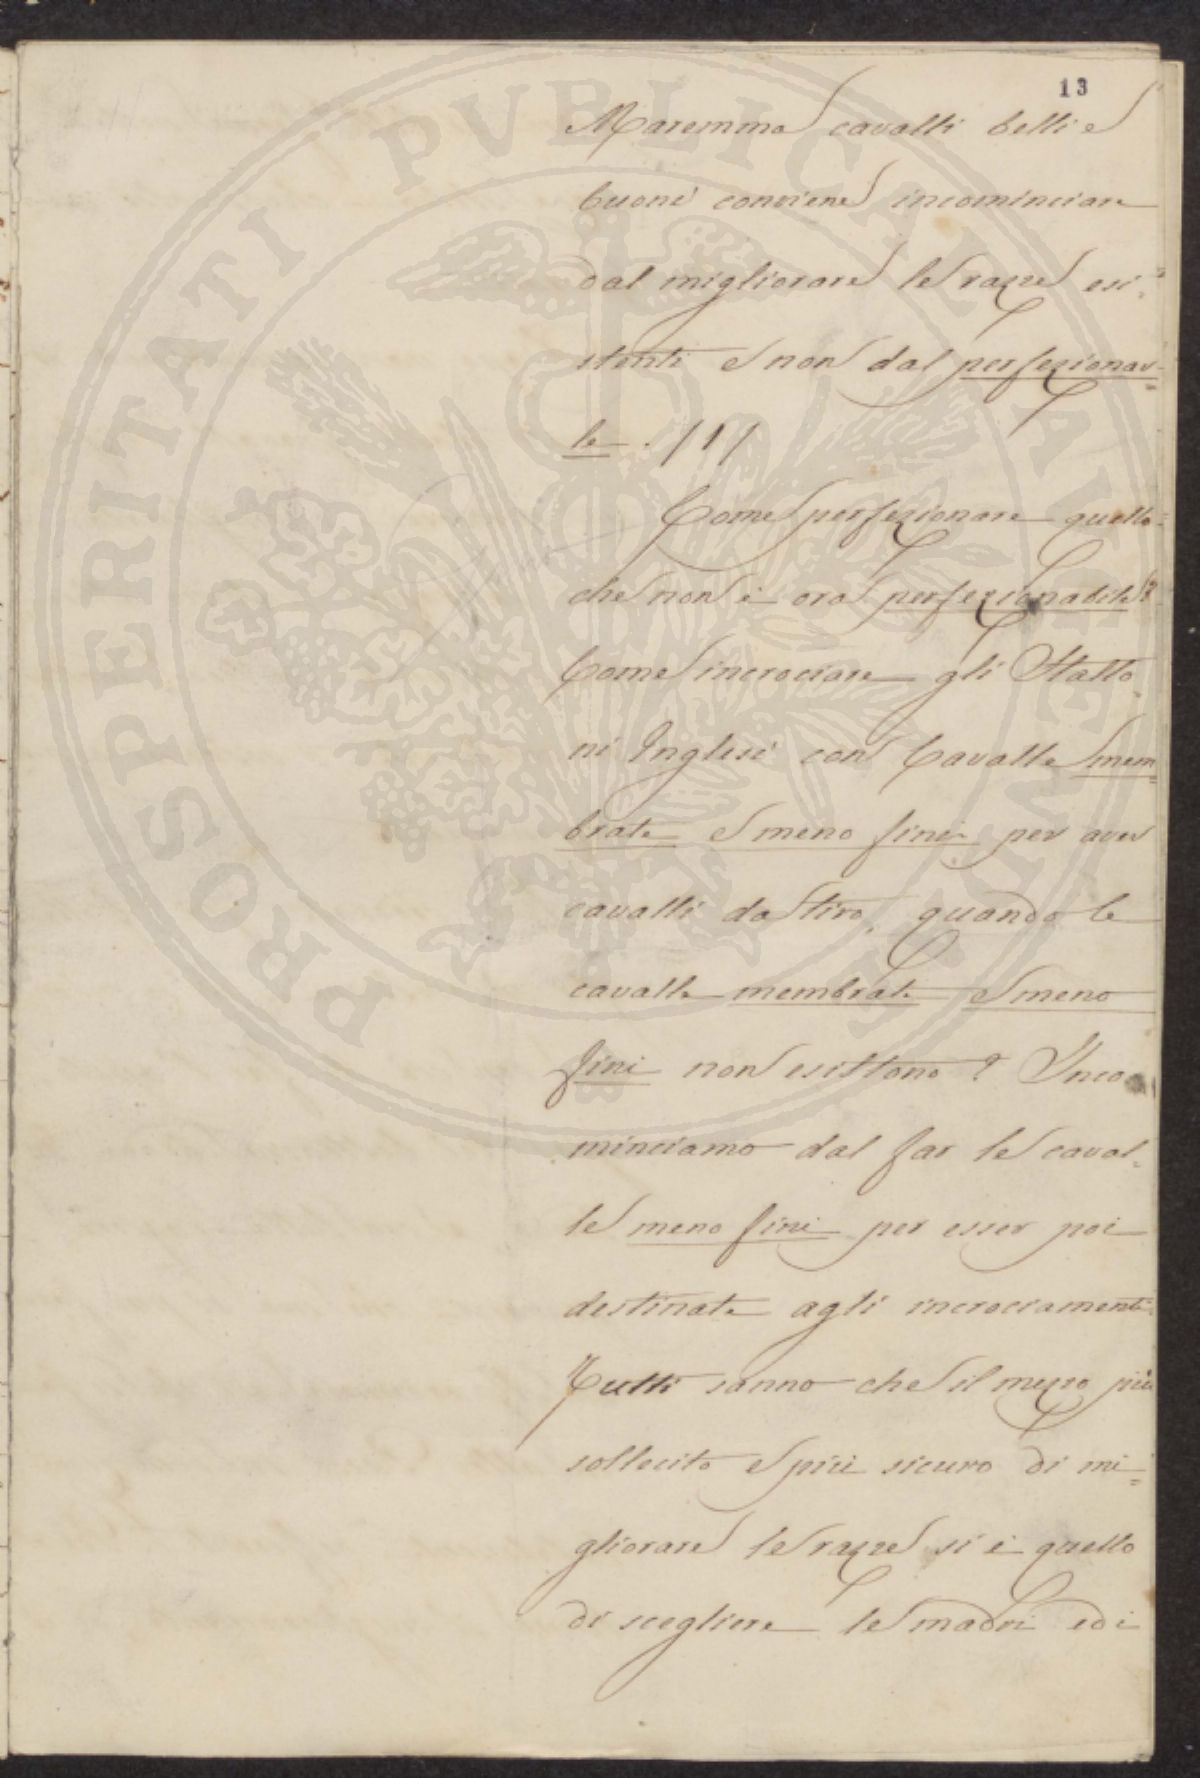 13
Maremma cavalli belli e
buoni conviene incominciare
dal migliorare le razze esi=
stenti e non dal perfezionar=
le. /1/
Come perfezionare quello
che non è ora perfezionabile?
Come incrociare gli Stallo=
ni Inglesi con Cavalle mem=
brate e meno fini per aver
cavalli da tiro, quando le
cavalle membrate e meno
fini non esistono? Inco=
minciamo dal far le caval=
le meno fini per esser poi
destinate agli incrociamenti
Tutti sanno che il mezzo più
sollecito e più sicuro di mi=
gliorare le razze si è quello
di scegliere le madri ed i
PROSPERITATI PVBLICAE AVGENDAE